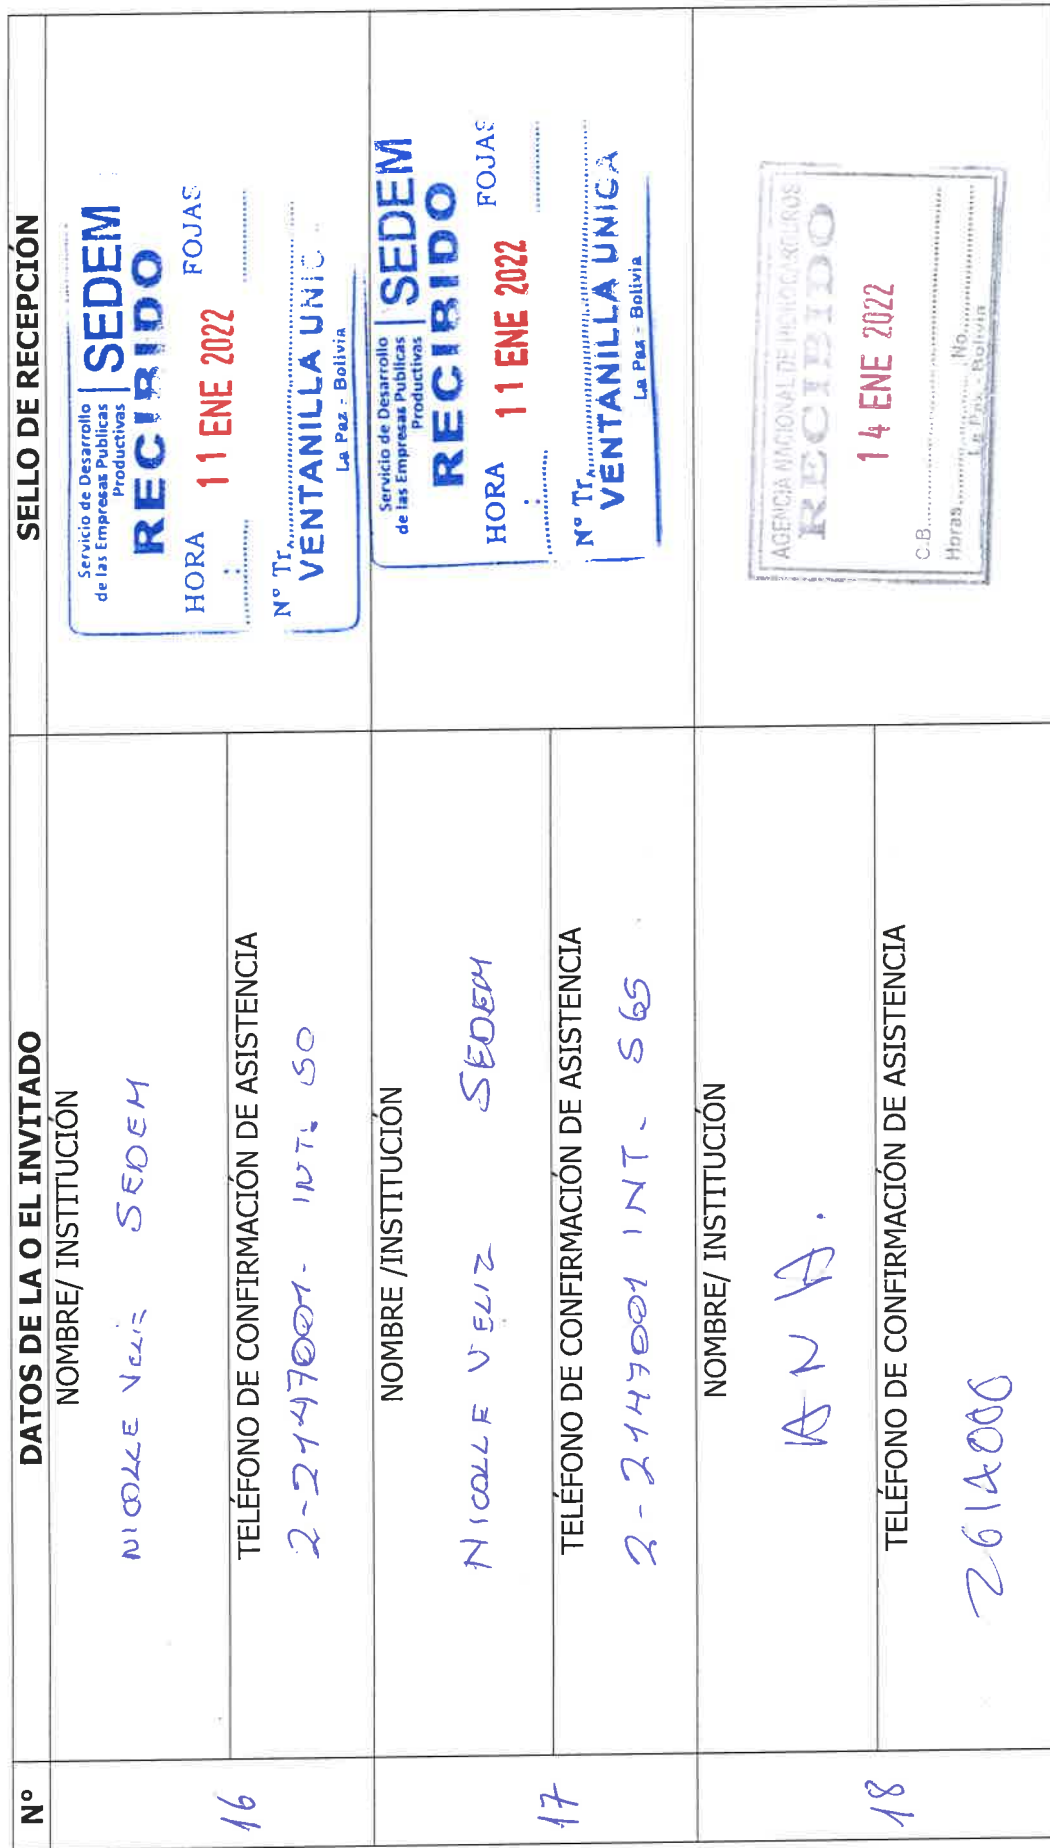 Nº
DATOS DE LA O EL INVITADO
SELLO DE RECEPCIÓN
16
NOMBRE/ INSTITUCIÓN
NICOLLE Veliz SEDEM
TELÉFONO DE CONFIRMACIÓN DE ASISTENCIA
2-2147001- INT. 50
Servicio de Desarrollo
de las Empresas Publicas
Productivas
SEDEM
RECIBIDO
HORA 11 ENE 2022 FOJAS
Nº Tr.
VENTANILLA UNIC
La Paz - Bolivia
17
NOMBRE /INSTITUCIÓN
NICOLLE VELIZ SEDEM
TELÉFONO DE CONFIRMACIÓN DE ASISTENCIA
2-2147001 INT- 565
Servicio de Desarrollo
de las Empresas Publicas
Productivas
SEDEM
RECIBIDO
HORA 11 ENE 2022 FOJAS
Nº Tr.
VENTANILLA UNICA
La Paz - Bolivia
18
NOMBRE/ INSTITUCIÓN
A N A.
TELÉFONO DE CONFIRMACIÓN DE ASISTENCIA
2614000
AGENCIA NACIONAL DE HIDROCARBUROS
RECIBIDO
14 ENE 2022
C.B.
Horas No
La Paz - Bolivia